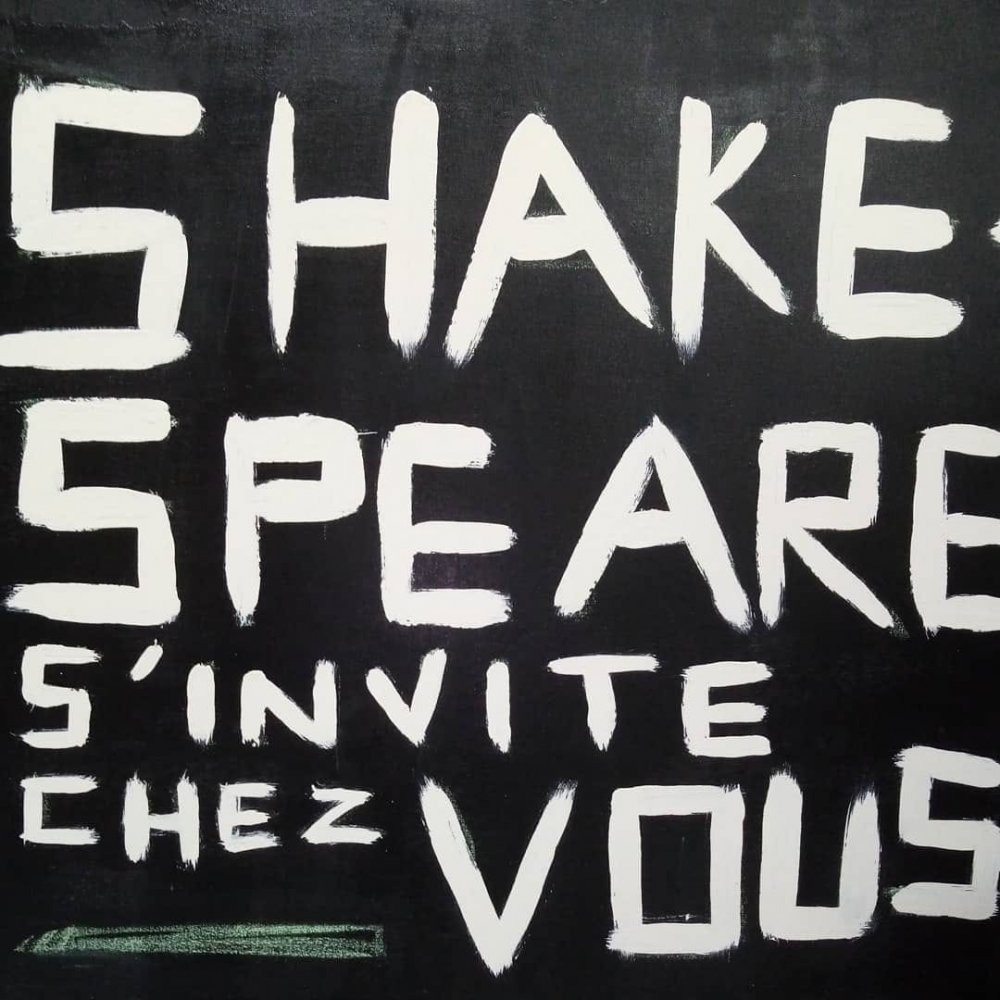 SHAKE-
SPEARE
S'INVITE
CHEZ VOUS